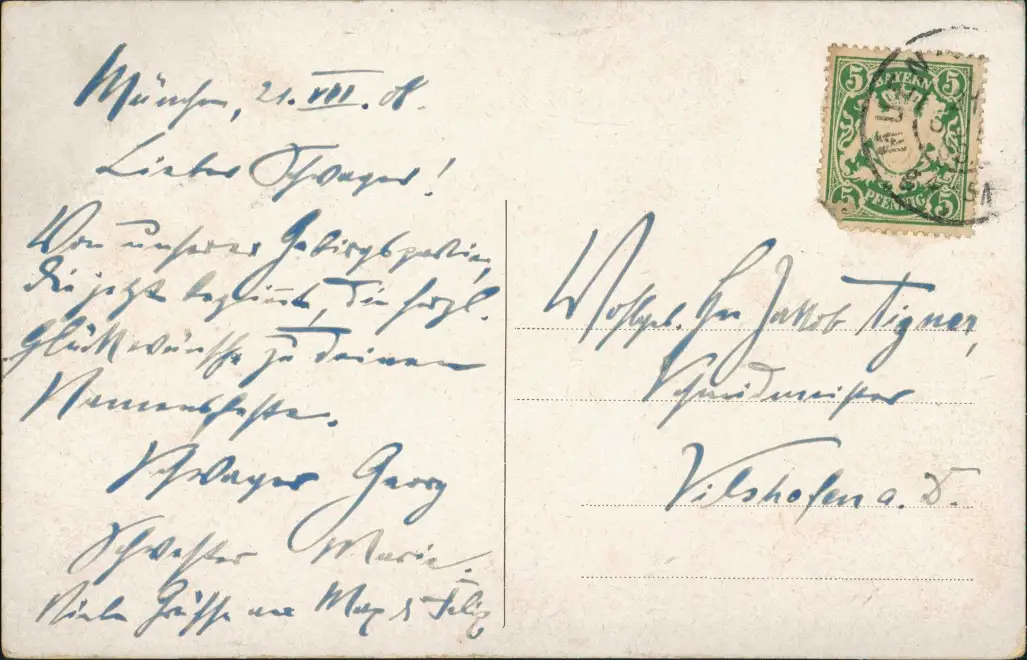 München, 21. VII. 08.
Lieber Schwager!
Von unserer Gebirgspartie,
die jetzt beginnt, die herzl.
Glückwünsche zu deinem
Namensfeste.
Schwager Georg
Schwester Marie.
Viele Grüsse an Max &
5 BAYERN 5
5 PFENNIG 5
Wohlgeb. Hrn Jakob Aigner,
Schmidmeister
Vilshofen a. D.